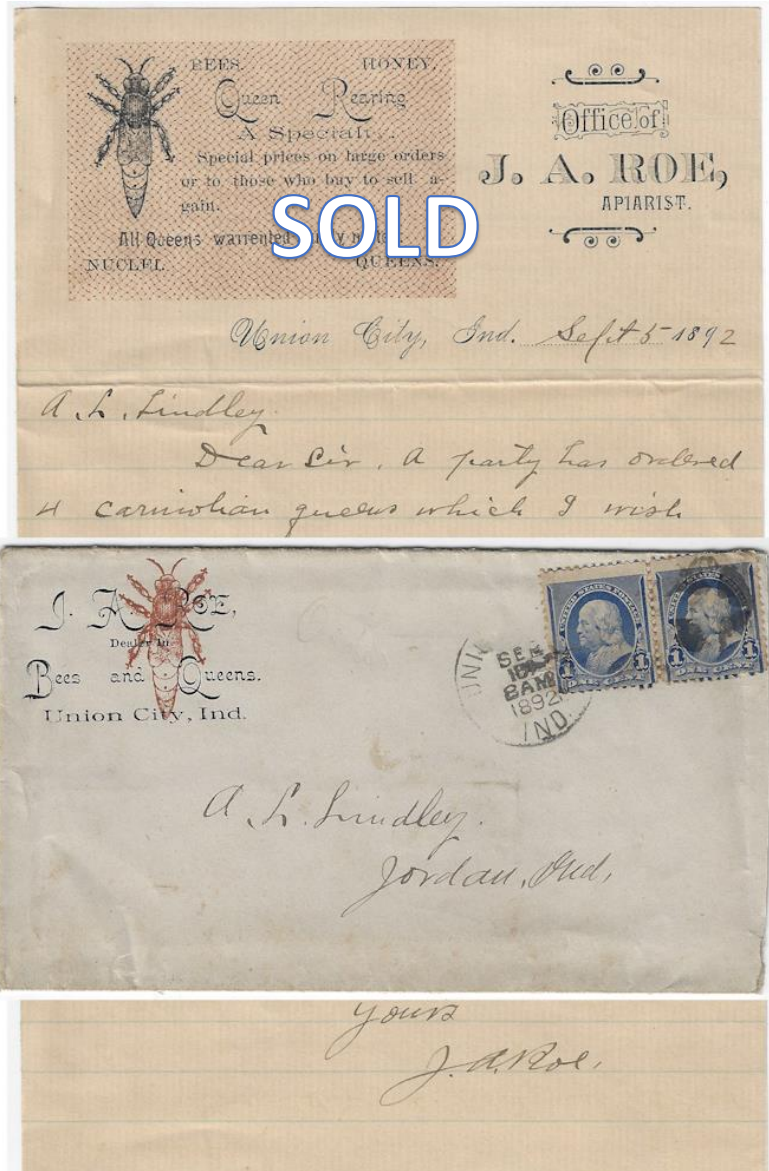 BEES. HONEY.
Queen Rearing
A Specialty.
Special prices on large orders
or to those who buy to sell a-
gain.
All Queens warrented
NUCLEI. QUEENS.
SOLD
Office of
J. A. ROE,
APIARIST.
Union City, Ind. Sept 5 1892
A. L. Lindley.
Dear Sir. A party has ordered
4 carniolian queens which I wish
J. A. ROE,
Dealer In
Bees and Queens.
Union City, Ind.
8 AM
1892
IND.
UNITED STATES POSTAGE
1 1
ONE CENT
UNITED STATES POSTAGE
1 1
ONE CENT
A. L. Lindley.
Jordan, Ind,
yours
J. A. Roe.